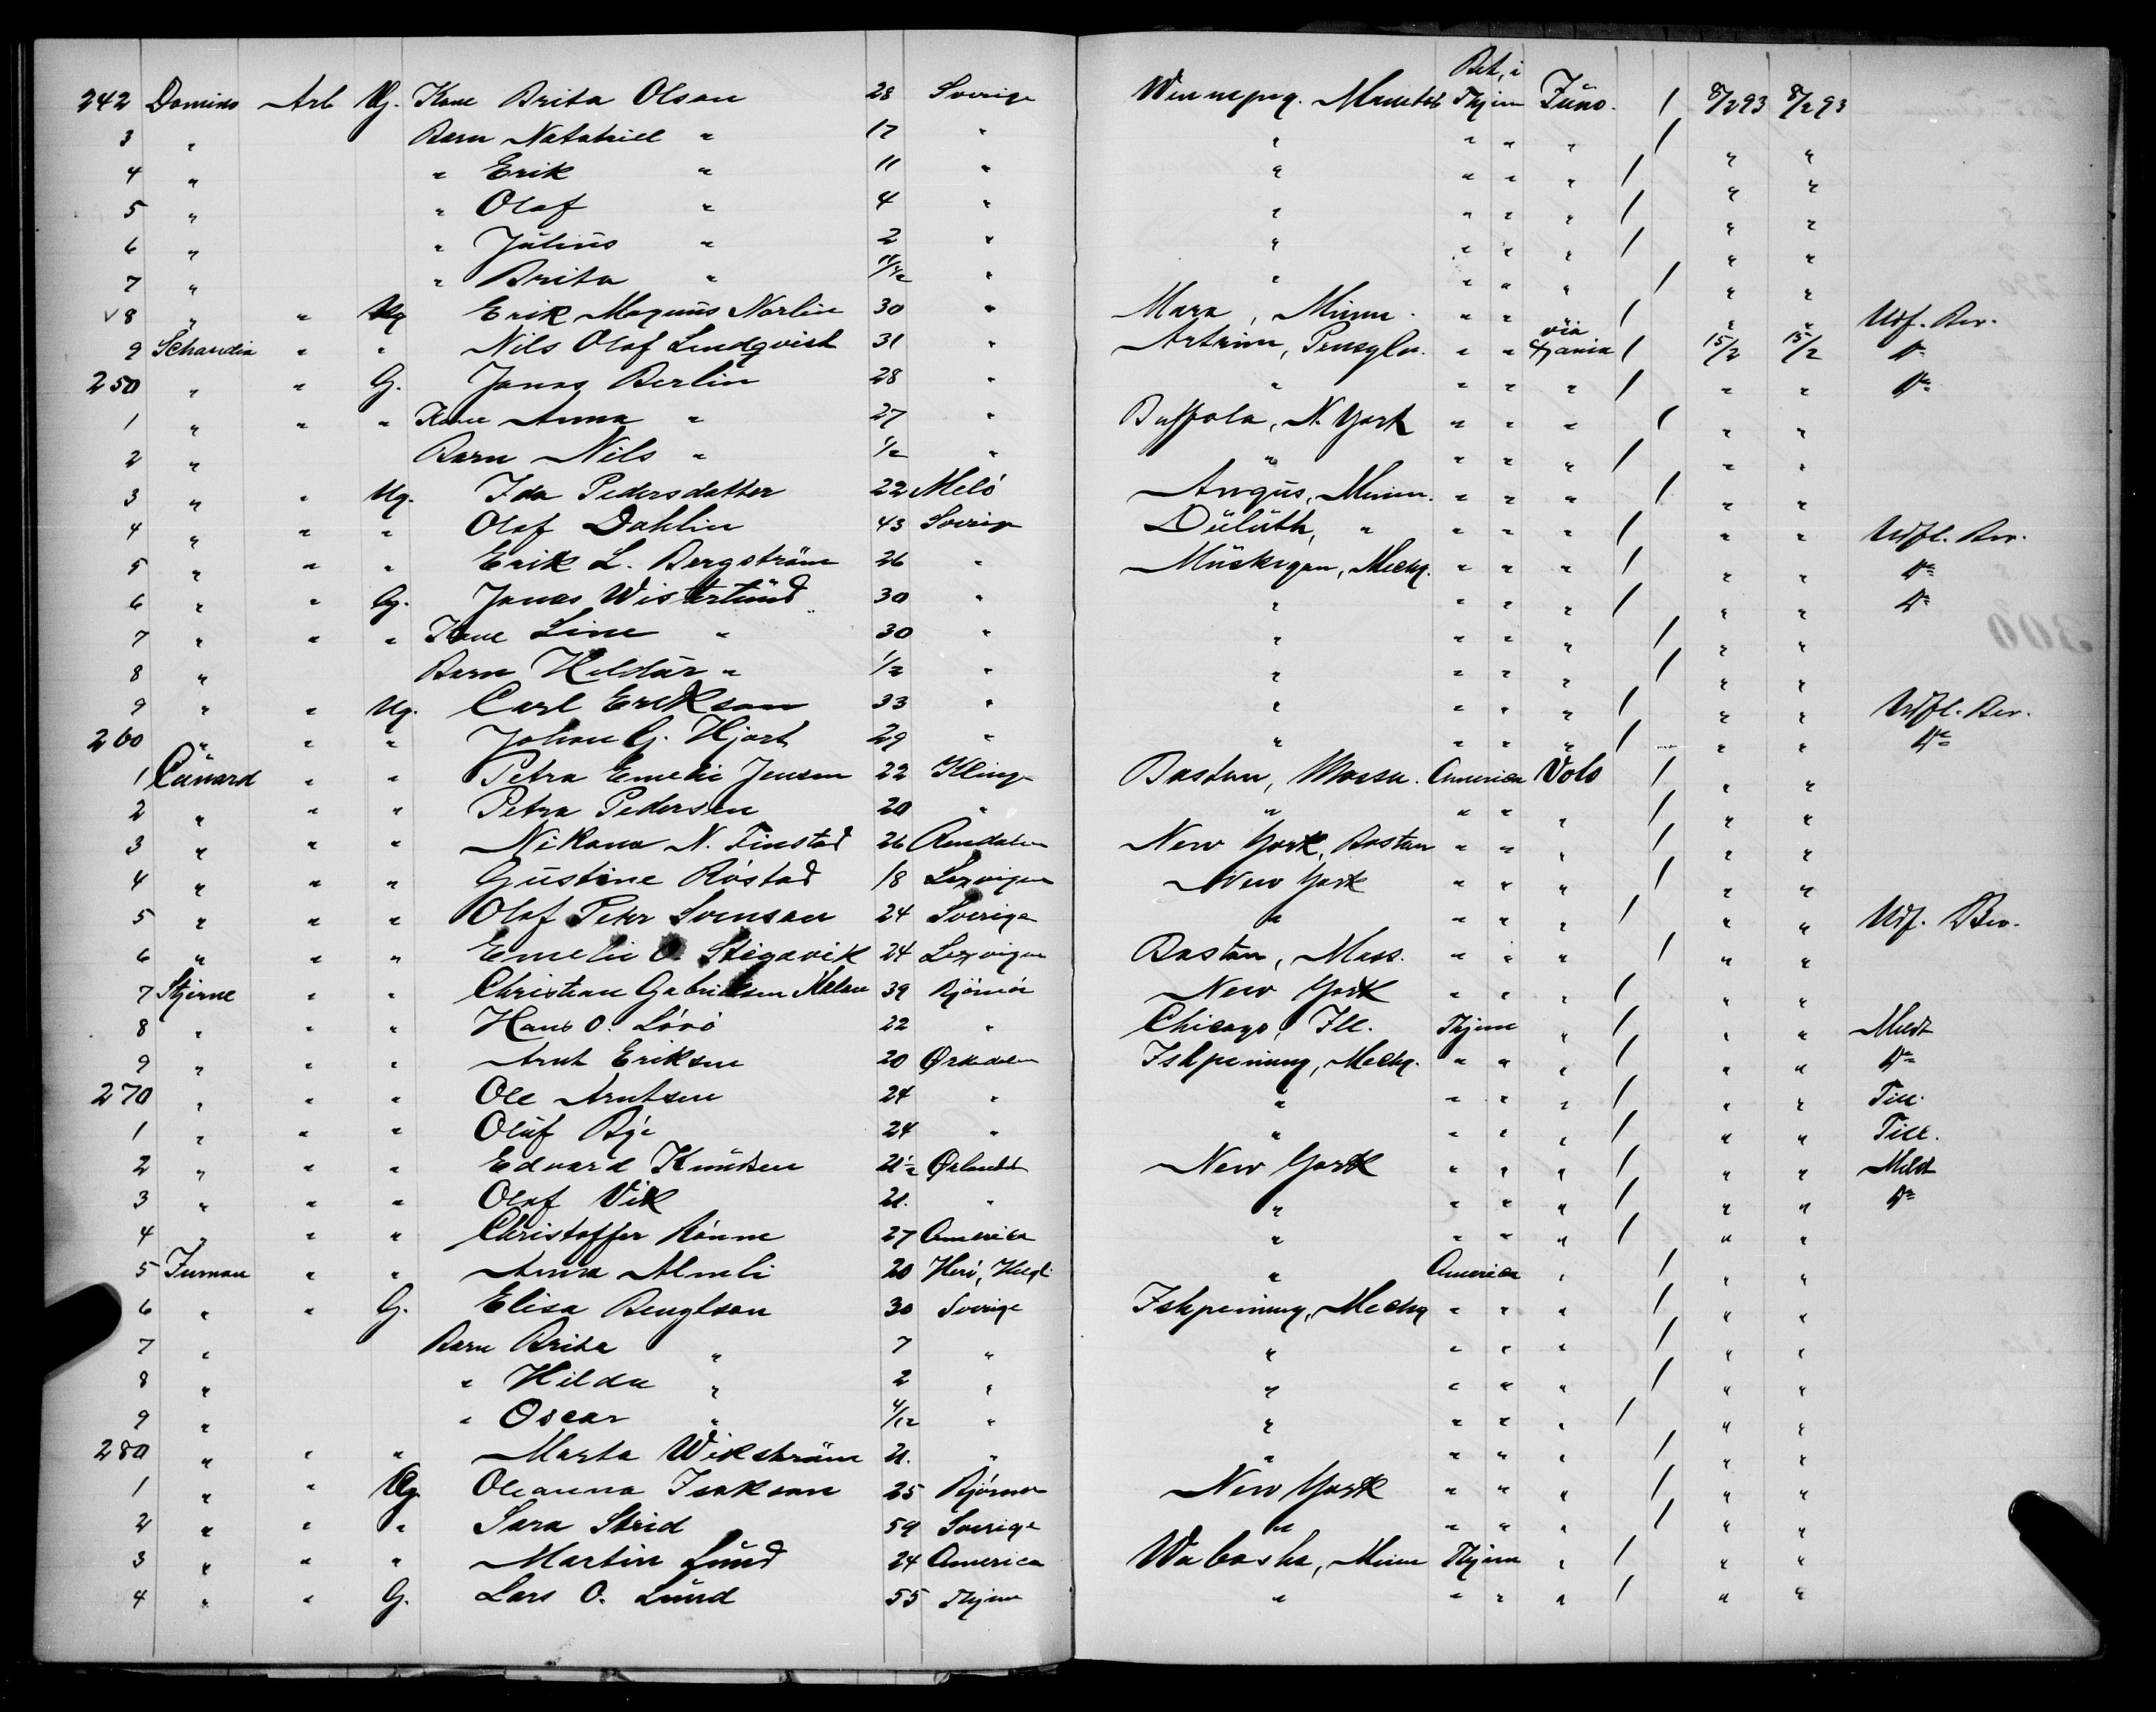 Bet, i
242 Domino Arb Ug. Kone Brita Olson 28 Sverige Winnepeg. Manetob Thjem Juno. 1 8/2 93 8/2 93
3 " Barn Natahiel " 17 " " " " " 1 " "
4 " " Erik " 11 " " " " " 1 " "
5 " " Olaf " 4 " " " " " 1 " "
6 " " Julius " 2 " " " " " 1 " "
7 " " Brita " 11/12 " " " " " 1 " "
√8 " " Ug Erik Magnus Norlin 30 " Mara, Minn. " " " 1 " " Udf. Bev.
9 Schandia " " Nils Olof Lindqvist 31 " Artrim, Pensylv. " " via X ania 1 15/2 15/2 Do
250 " " G. Jonas Berlin 28 " " " " " 1 " " Do
1 " " " Kone Anna " 27 " Buffola, N. York " " " 1 " "
2 " Barn Nils " 1/2 " " " " " 1 " "
3 " " Ug. Ida Pedersdatter 22 Melö Angus, Minn. " " " 1 " "
4 " " " Olof Dahlin 43 Sverige Duluth, " " " " 1 " " Udfl. Bev.
5 " " " Erik L. Bergström 26 " Muskegan, Mechg. " " " 1 " " Do
6 " " G. Jonas Wisterlund 30 " " " " " 1 " " Do
7 " " " Kone Line " 30 " " " " " 1 " "
8 " Barn Heldur " 1/2 " " " " " 1 " "
9 " " Ug. Carl Erekson 33 " " " " " 1 " " Udfl. Bev.
260 " " " Johan G. Hjort 29 " " " " " 1 " " Do
1 Cunard " " Petra Emelie Jensen 22 Klinge Bostun, Massa. America Volo 1 " "
2 " " " Petra Pedersen 20 " " " " " 1 " "
3 " " " Nikona N. Finstad 26 Rendalen New York, Bostun " " " 1 " "
4 " " " Gustine Röstad 18 Lexvigen New York " " " 1 " "
5 " " " Olof Peter Svenson 24 Sverige " " " " 1 " " Udf. Bev.
6 " " " Emelie O. Stigavik 24 Lexvigen Bostun, Mass. " " " 1 " "
7 Stjerne " " Christian Gabrielsen Melan 39 Bjömör New York " " " 1 " "
8 " " " Hans O. Lövö 22 " Chicago, Ill. Thjem " 1 " " Meldt
9 " " " Arnt Eriksen 20 Ørkedalen Ishpeming, Mechg. " " " 1 " " Do
270 " " " Ole Arntsen 24 " " " " " 1 " " Till.
1 " " " Oluf Bye 24 " " " " " 1 " " Till.
2 " " " Edvard Knudsen 21 1/2 Ørlandet New York " " " 1 " " Meldt
3 " " " Olaf Vik 21. " " " " " 1 " " Do
4 " " " Christoffer Rönne 27 America " " " " 1 " "
5 Inman " " Anna Almli 20 Herö, Helgl. " America " 1 " "
6 " " G. Elisa Bengtson 30 Sverige Ishpeming, Mechg " " " 1 " "
7 " Barn Brita " 7 " " " " " 1 " "
8 " " Hilda " 2 " " " " " 1 " "
9 " " Oscar " 4/12 " " " " " 1 " "
280 " " " Marta Wikström 21. " " " " " 1 " "
1 " " Ug. Oleanna Isakson 25 Bjömör New York " " " 1 " "
2 " " " Sara Strid 59 Sverige " " " " 1 " "
3 " " " Martin Lund 24 America Wabasha, Minn Thjem " 1 " "
4 " " G. Lars O. Lund 55 Thjem " " " " 1 " "
300